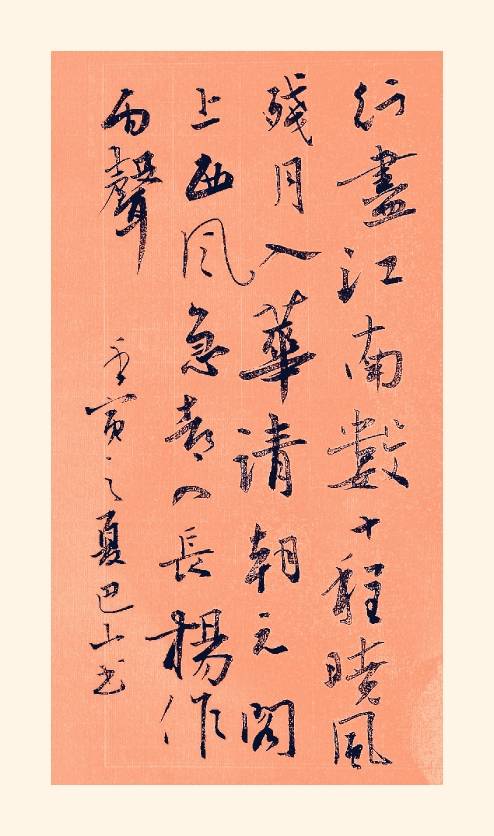 行盡江南數十程曉風
殘月入華清朝元閣
上西風急都入長楊作
雨聲
壬寅之夏巴山书